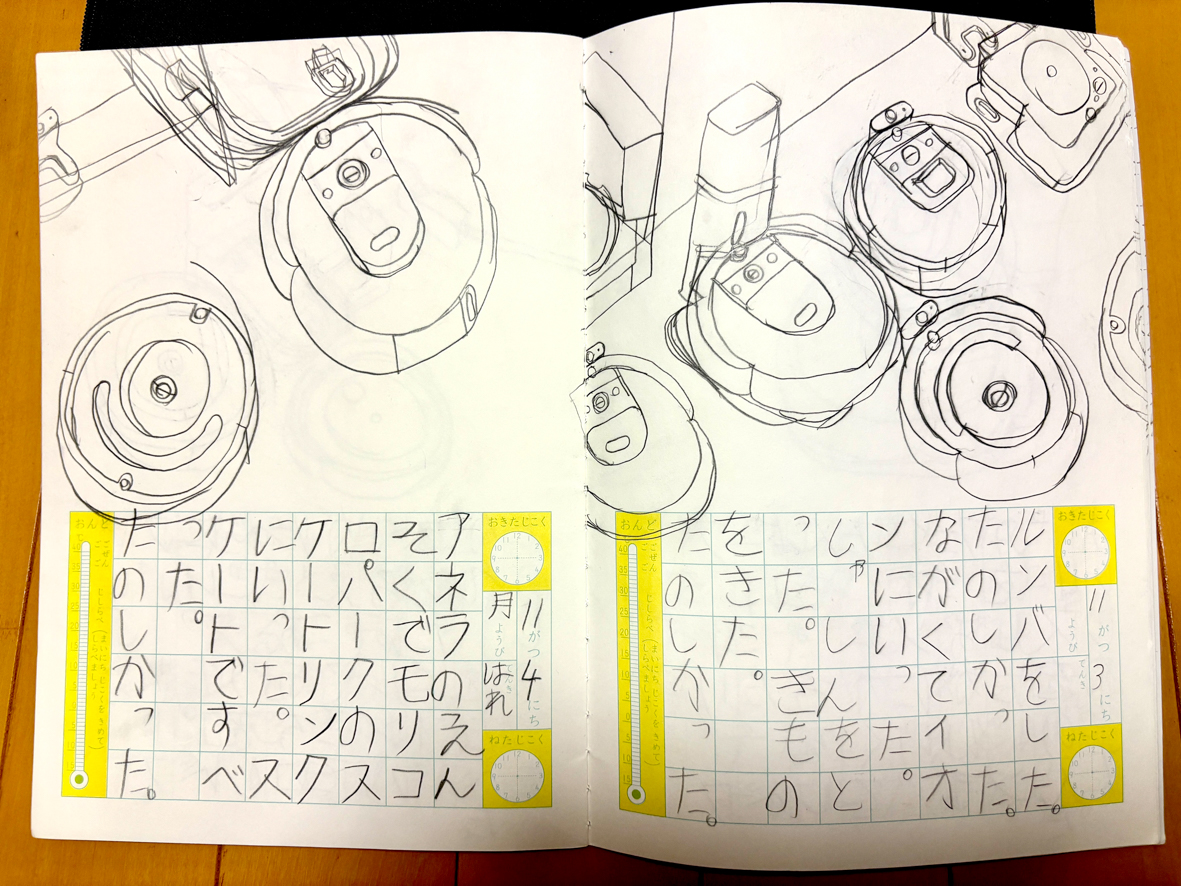 おきたじこく
11がつ3にち
ようび
てんき
ねたじこく
ルンバをした。
たのしかった。
ながくてイオ
ンにいった。
しゃしんをと
った。きもの
をきた。
たのしかった。
おんど
ごぜん
ごご
じしらべ
(まいにちじこくをきめてしらべましょう)
おきたじこく
11がつ4にち
月ようび
てんき
はれ
ねたじこく
アネラのえん
そくでモリコ
ロパークのス
ケートリンク
にいった。ス
ケートですべ
った。
たのしかった。
おんど
ごぜん
ごご
じしらべ
(まいにちじこくをきめてしらべましょう)